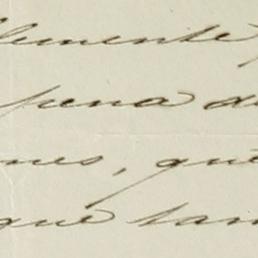 lemente,
pena de
nes, que
que tan